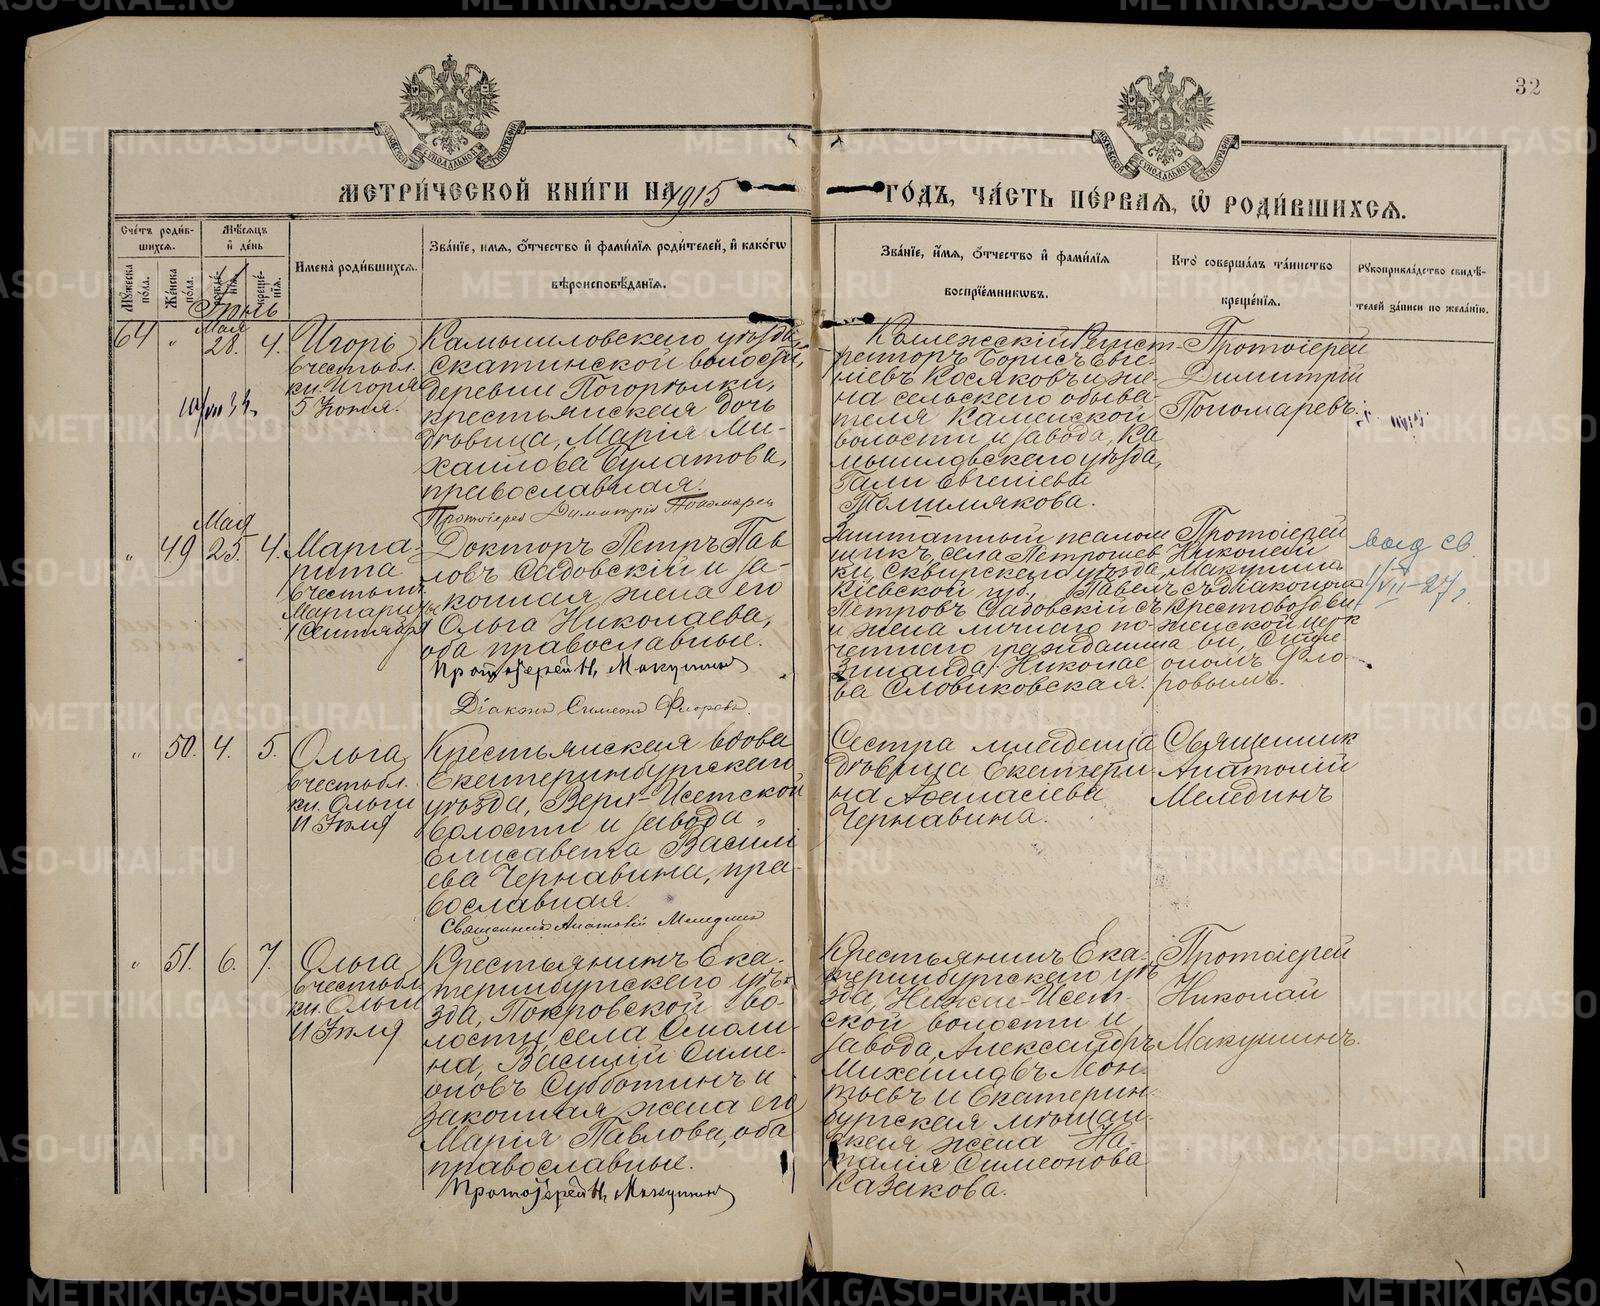 32
МЕТРИ́ЧЕСКОЙ КНИ́ГИ НА 1915 ГО́ДЪ, ЧА́СТЬ ПЕ́РВАЯ, Ѡ РОДИ́ВШИХСЯ.
Сче́тъ роди́в-
шихся.
Мѣ́сяцъ
и день
Имена̀ роди́вшихся.
Зва́нїе, имя, о́тчество и фами́лїя роди́телей, и како́гѡ
вѣроисповѣ́данїя.
Му́жеска
по́ла.
Же́нска
по́ла.
креще́-
нїя.
Зва́нїе, и́мя, о́тчество и фами́лїя
воспрїе́мниковъ.
Кто̀ соверша́лъ та́инство
креще́нїя.
Рукоприкла́дство свидѣ́-
телей за́писи по жела́нїю.
64 " Мая 28. 4. Игорь
въ честь бл.
кн. Игоря
5 Іюня.
Камышловскаго уѣзда,
Скатинской волости,
деревни Погорѣлки,
крестьянская дочь
дѣвица, Марія Ми-
хаилова Булатова,
православная.
Протоіерей Димитрій Пономарев
Евге-
ніевъ Косяковъ и же-
на сельскаго обыва-
теля Каменской
волости и завода, Ка
мышловскаго уѣзда,
Евгеніева
Протоіерей
Димитрій
Пономаревъ.
" 49 Мая 25. 4. Марга-
рита
въ честь мц.
Маргариты
1 Сентября
Докторъ Петръ Пав
ловъ Садовскій и за-
конная жена его
Ольга Николаева,
оба православные.
Протоіерей Н. Макушин
Діаконъ Симеон Флоровъ.
Заштатный псалом
щикъ, села
ки, Сквирскаго уѣзда,
Кіевской губ., Павелъ
Петровъ Садовскій
и жена личнаго по-
четнаго гражданина
Зинаида Николае
ва Словиковская.
Протоіерей
Николай
Макушин
съ діакономъ
Крестовоздви
женской церк
ви, Симе
ономъ Фло
ровымъ.
выд св.
1/VII-27 г.
" 50. 4. 5. Ольга
въ честь бл.
кн. Ольги
11 Іюля
Крестьянская вдова
Екатеринбургскаго
уѣзда, Верх-Исетской
волости и завода,
Елисавета Василі
ева Чернавина, пра-
вославная.
Священник Анатолій Меледин
Сестра младенца
дѣвица Екатери
на Афанасіева
Чернавина.
Священник
Анатолій
Мелединъ
" 51. 6. 7. Ольга
въ честь бл.
кн. Ольги
11 Іюля
Крестьянинъ Ека-
теринбургскаго уѣ-
зда, Покровской во-
лости, села Смоли-
на, Василій Симе-
оновъ Субботинъ и
законная жена его
Марія Павлова, оба
православные.
Протоіерей Н. Макушин
Крестьянинъ Ека-
теринбургскаго уѣ
зда, Нижне-Исет-
ской волости и
завода, Александръ
Михаиловъ Леон-
тьевъ и Екатерин-
бургская мѣщан-
ская жена На-
талія Симеонова
Казакова.
Протоіерей
Николай
Макушинъ.
METRIKI.GASO-URAL.RU